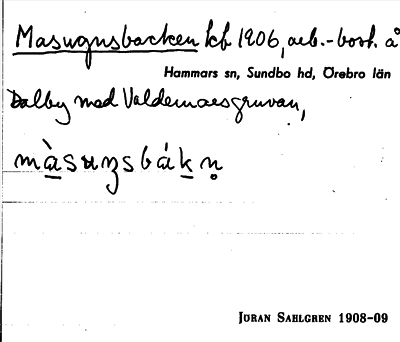 Masugnsbacken kb 1906, arb.-bost. å
Hammars sn, Sundbo hd, Örebro län
Dalby med Valdemarsgruvan,
màsuŋsbák n̥
JÖRAN SAHLGREN 1908–09